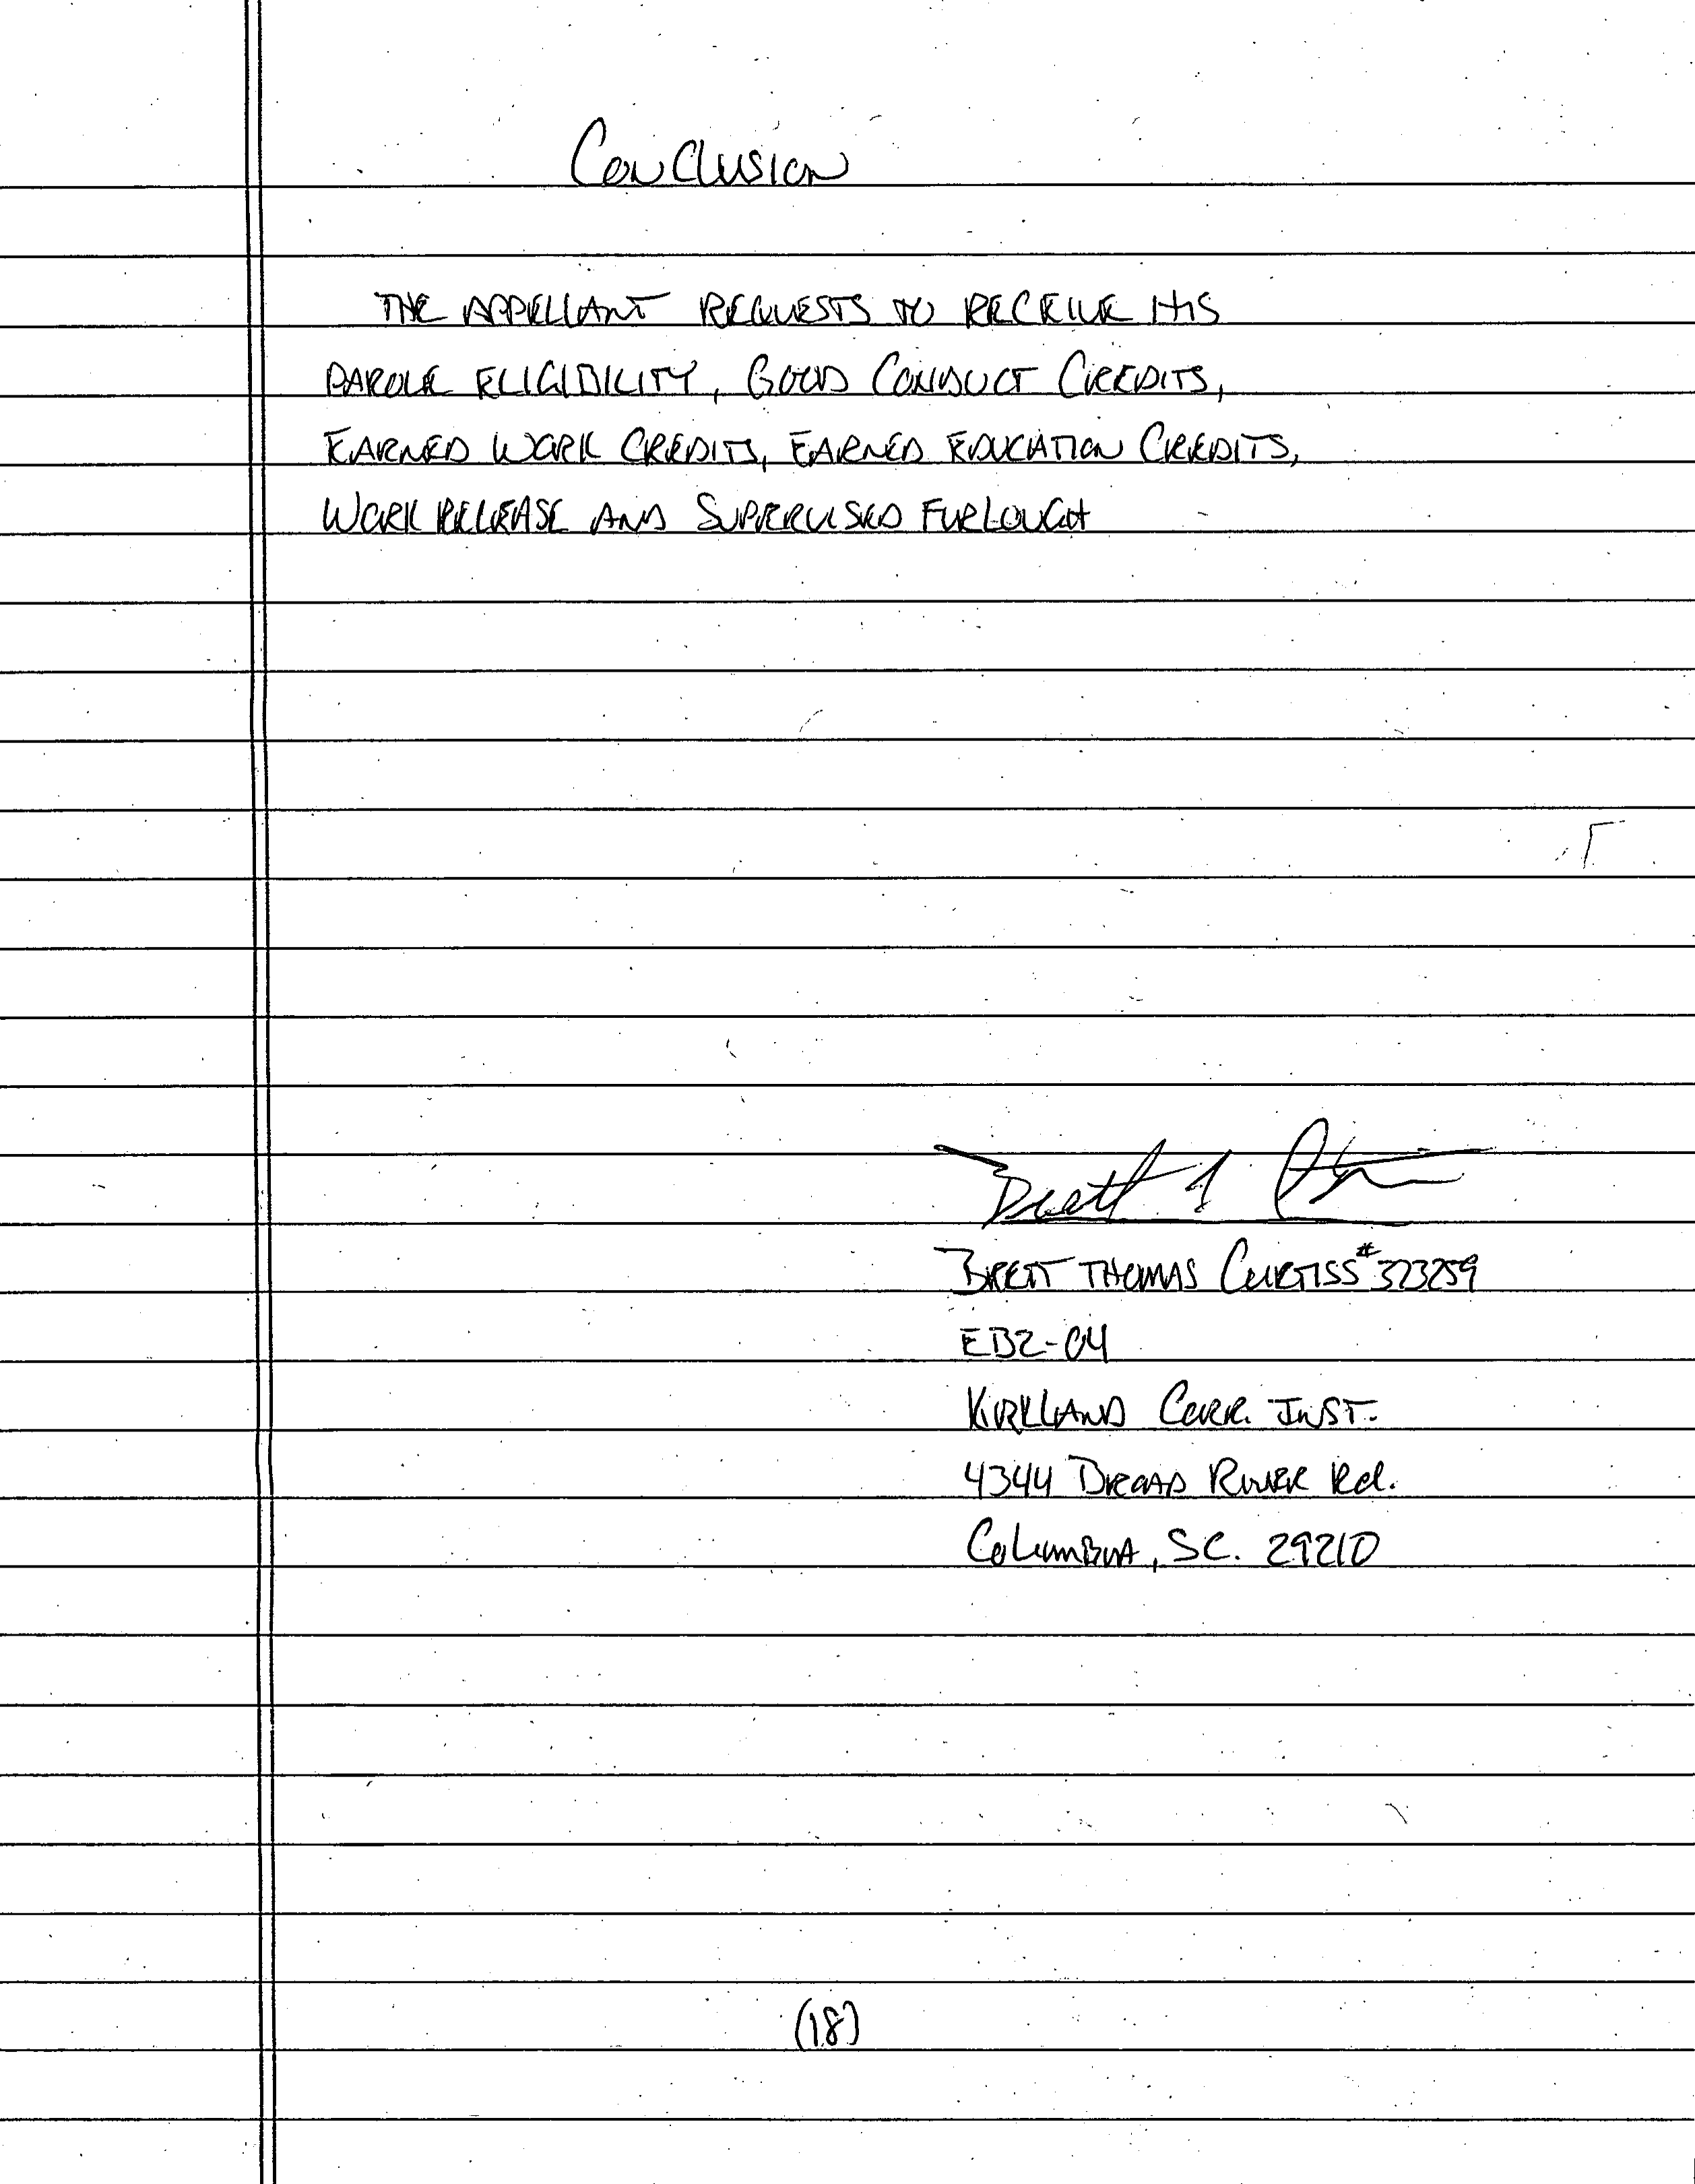 Conclusion
THE APPELLANT REQUESTS TO RECEIVE HIS
PAROLE ELIGIBILITY, GOOD CONDUCT CREDITS,
EARNED WORK CREDITS, EARNED EDUCATION CREDITS,
WORK RELEASE AND SUPERVISED FURLOUGH
BRETT THOMAS CURTISS #323259
EB2-04
KIRKLAND CORR. INST.
4344 BROAD RIVER Rd.
COLUMBIA, SC. 29210
(18)